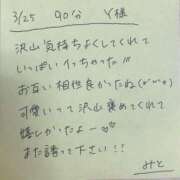 3/25 90分 Y様
沢山気持ちよくしてくれて
いっぱいイっちゃった!!!
お互い相性良かったね(*^^*)
可愛いって沢山褒めてくれて
嬉しかったよー♡♡
また誘って下さい!!
みと